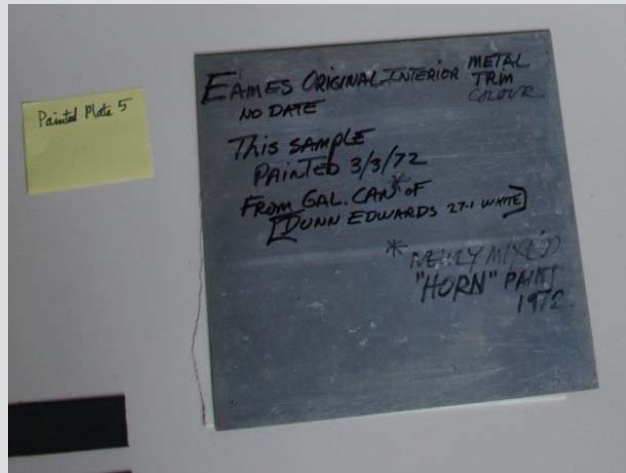 Painted Plate 5
EAMES ORIGINAL INTERIOR METAL
TRIM
COLOUR
NO DATE
This SAMPLE
PAINTED 3/3/72
FROM GAL. CAN* OF
[DUNN EDWARDS 27-1 WHITE]
* NEWLY MIXED
"HORN" PAINT
1972